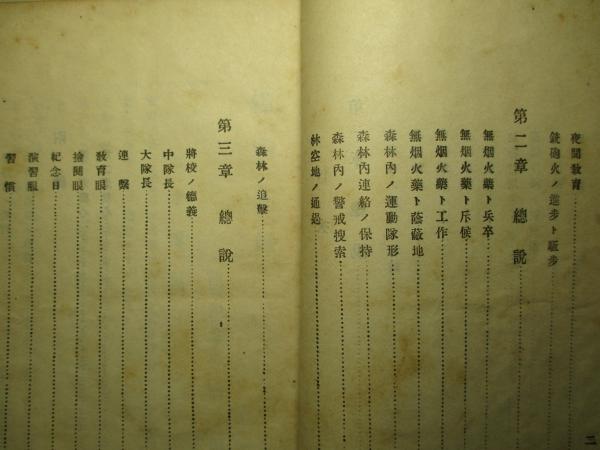 夜間教育
銃砲火ノ進歩ト駈歩
第二章 總說
無烟火藥ト兵卒
無烟火藥ト斥候
無烟火藥ト工作
無烟火藥ト蔭蔽地
森林內ノ運動隊形
森林內連絡ノ保持
森林內ノ警戒搜索
林空地ノ通過
二
森林ノ追擊
第三章 總說
將校ノ德義
中隊長
大隊長
連繫
敎育眼
檢閱眼
紀念日
演習服
習慣